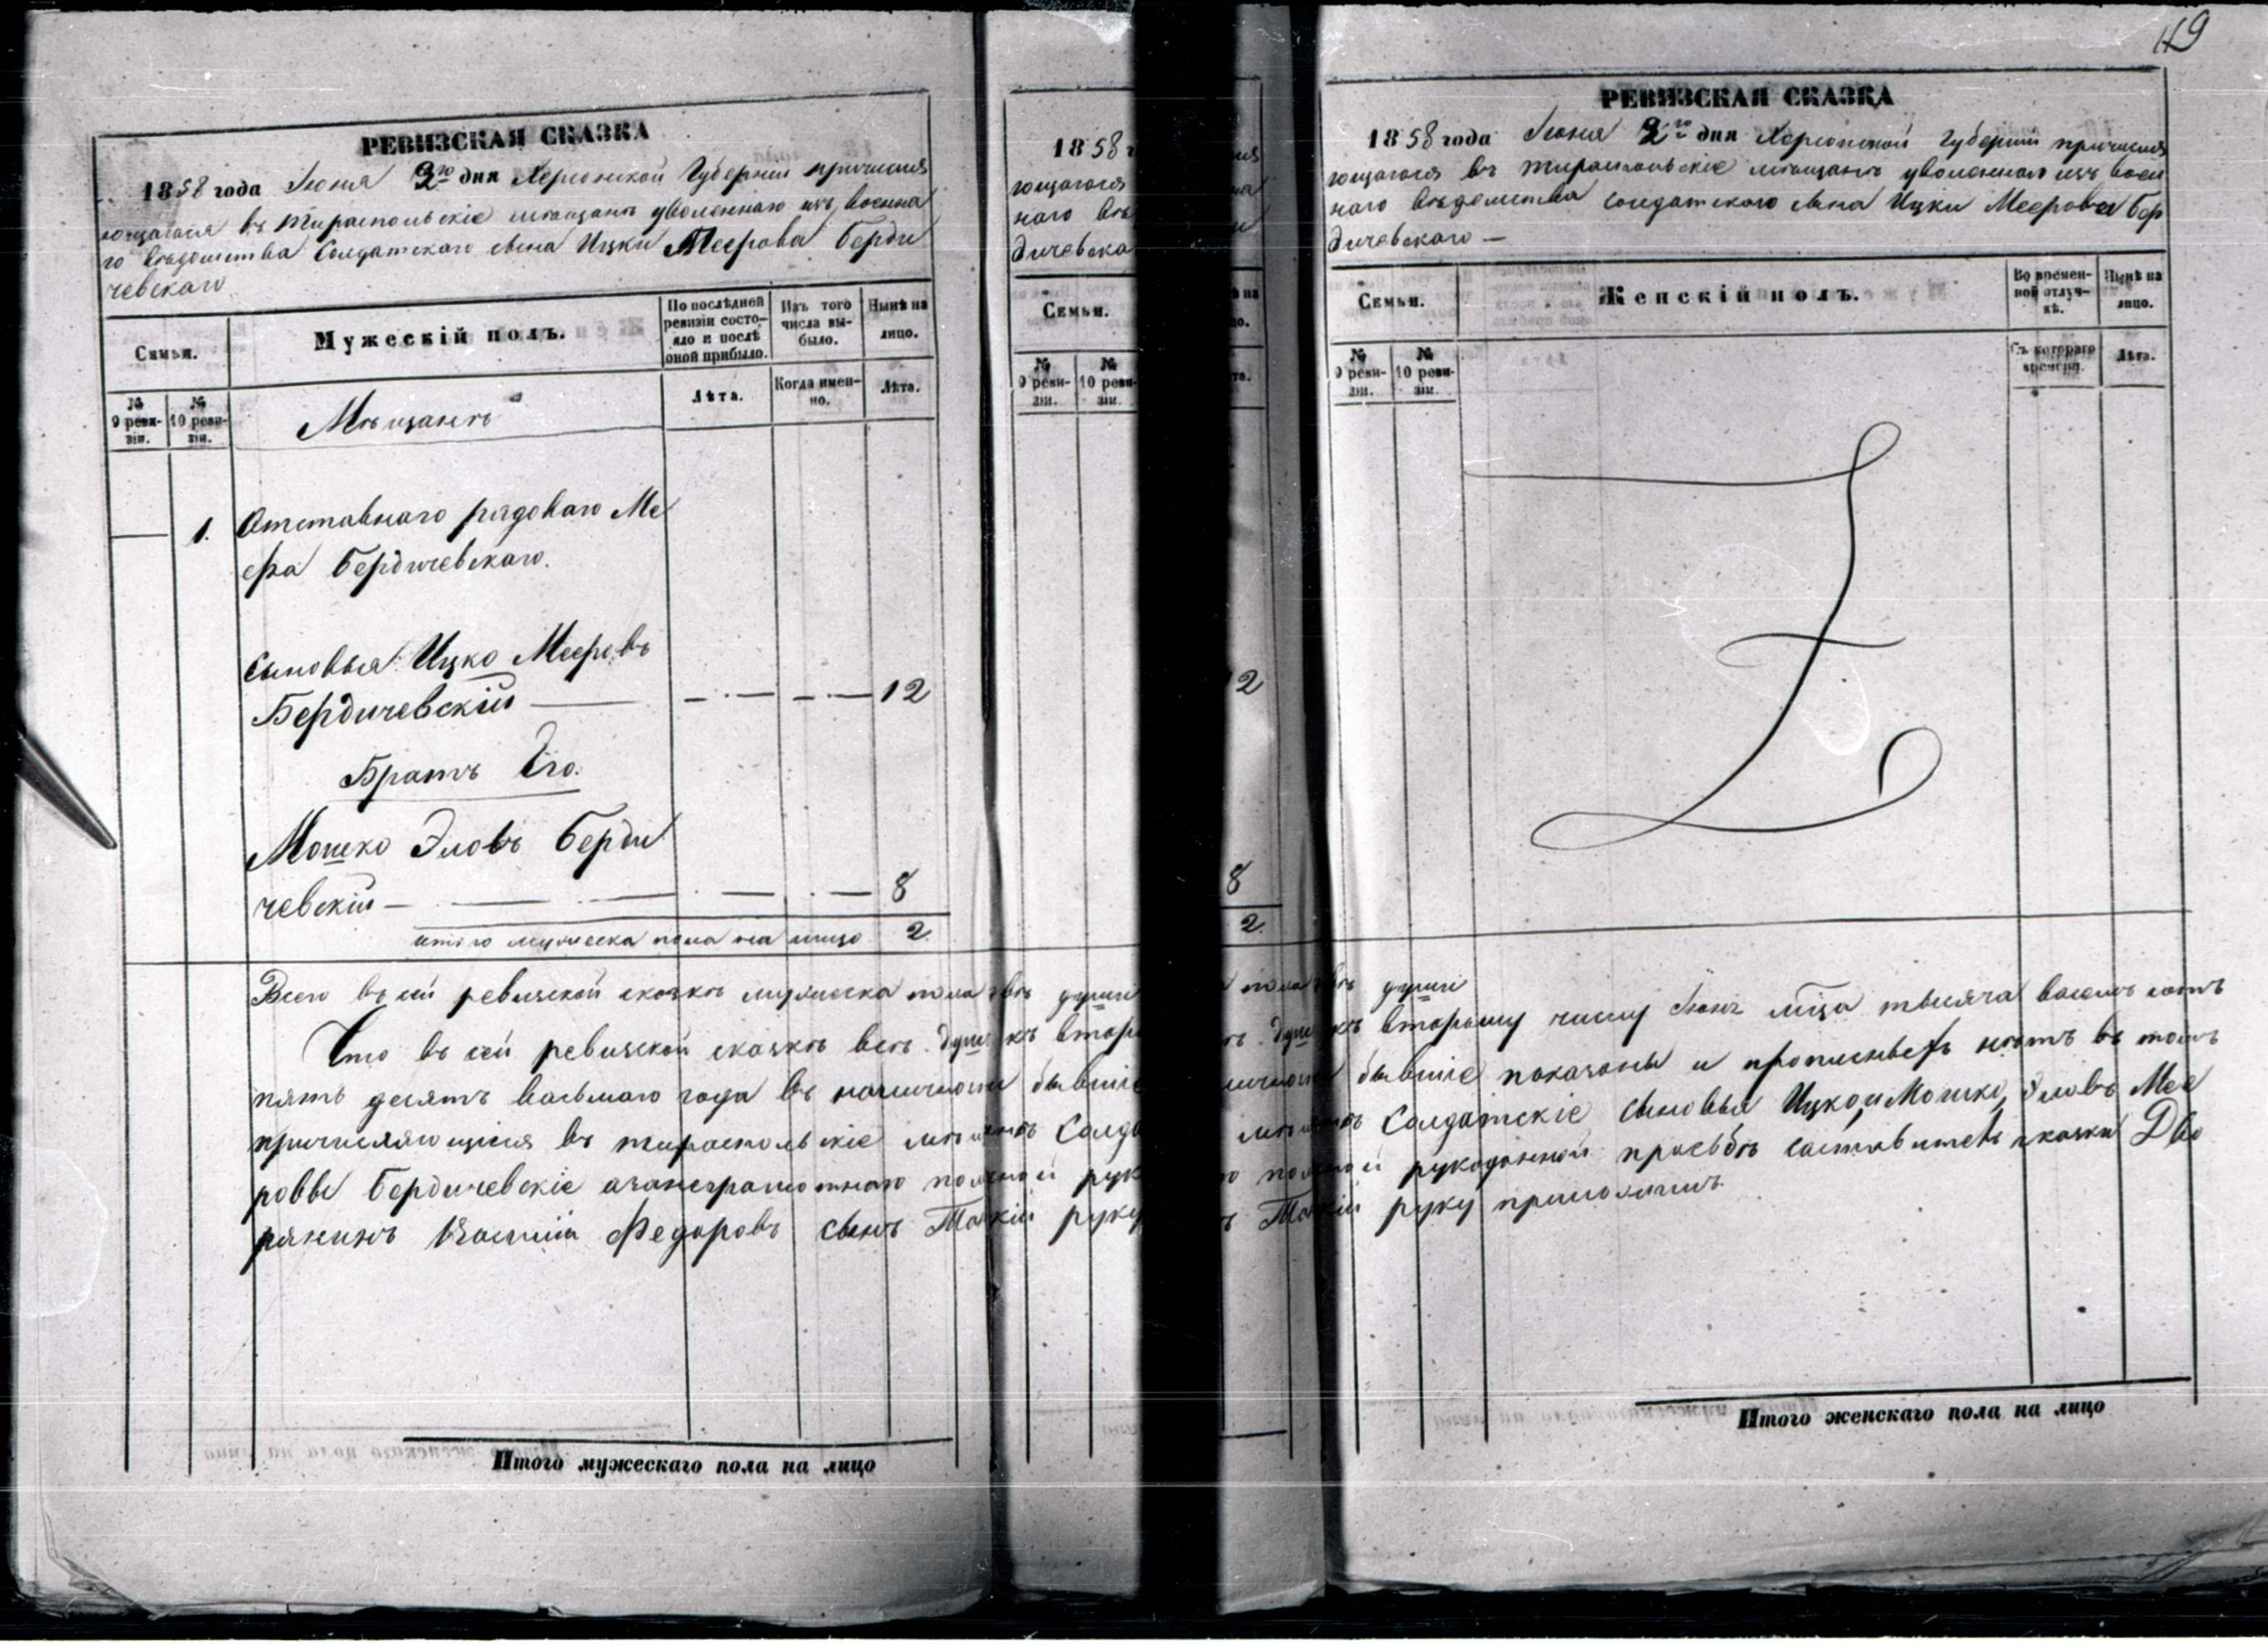 РЕВИЗСКАЯ СКАЗКА
1858 года Июня 2го дня Херсонской Губернии причисля
ющагося въ Тираспольскіе мѣщане уволеннаго изъ военна
го вѣдомства Солдатскаго сына Ицки Меерова Берди
чевскаго
Семьи.
Мужескій полъ.
По послѣдней ревизіи состояло и послѣ оной прибыло.
Изъ того числа выбыло.
Нынѣ на лицо.
№ 9 ревизіи.
№ 10 ревизіи.
Мѣщанъ
Лѣта.
Когда именно.
Лѣта.
1. Отставнаго рядоваго Ме
ера Бердичевскаго.
Сыновья: Ицко Мееровъ
Бердичевскій — 12
Братъ Его.
Мошко Эловъ Берди
чевскій — 8
итого мужеска пола на лицо 2.
Всего въ сей ревизской сказкѣ мужеска пола двѣ души
Что въ сей ревизской сказкѣ всѣ души къ втор
пять десятъ восьмаго года въ наличности бывшіе
причисляющіеся въ тираспольскіе мѣщане Солда
ровы Бердичевскіе
рянинъ Василій Федоровъ сынъ руку
Итого мужескаго пола на лицо
1858 г
ющагося
наго вѣ
дичевска
Семьи.
№ 9 ревизіи.
№ 10 ревизіи.
12
8
2.
49
РЕВИЗСКАЯ СКАЗКА
1858 года Июня 2го дня Херсонской Губерніи причисля
ющагося въ Тираспольскіе мѣщане уволеннаго изъ воен
наго вѣдомства солдатскаго сына Ицки Меерова Бер
дичевскаго —
Семьи.
Женскій полъ.
Во временной отлучкѣ.
Нынѣ на лицо.
№ 9 ревизіи.
№ 10 ревизіи.
Съ котораго времени.
Лѣта.
души
второму числу Июня мѣца тысяча восемь сотъ
бывшіе показаны и прописныхъ нѣтъ въ томъ
Солдатскіе сыновья Ицко и Мошко Эловъ Мее
рукоданной просьбѣ составитель сказки Дво
руку приложилъ.
Итого женскаго пола на лицо